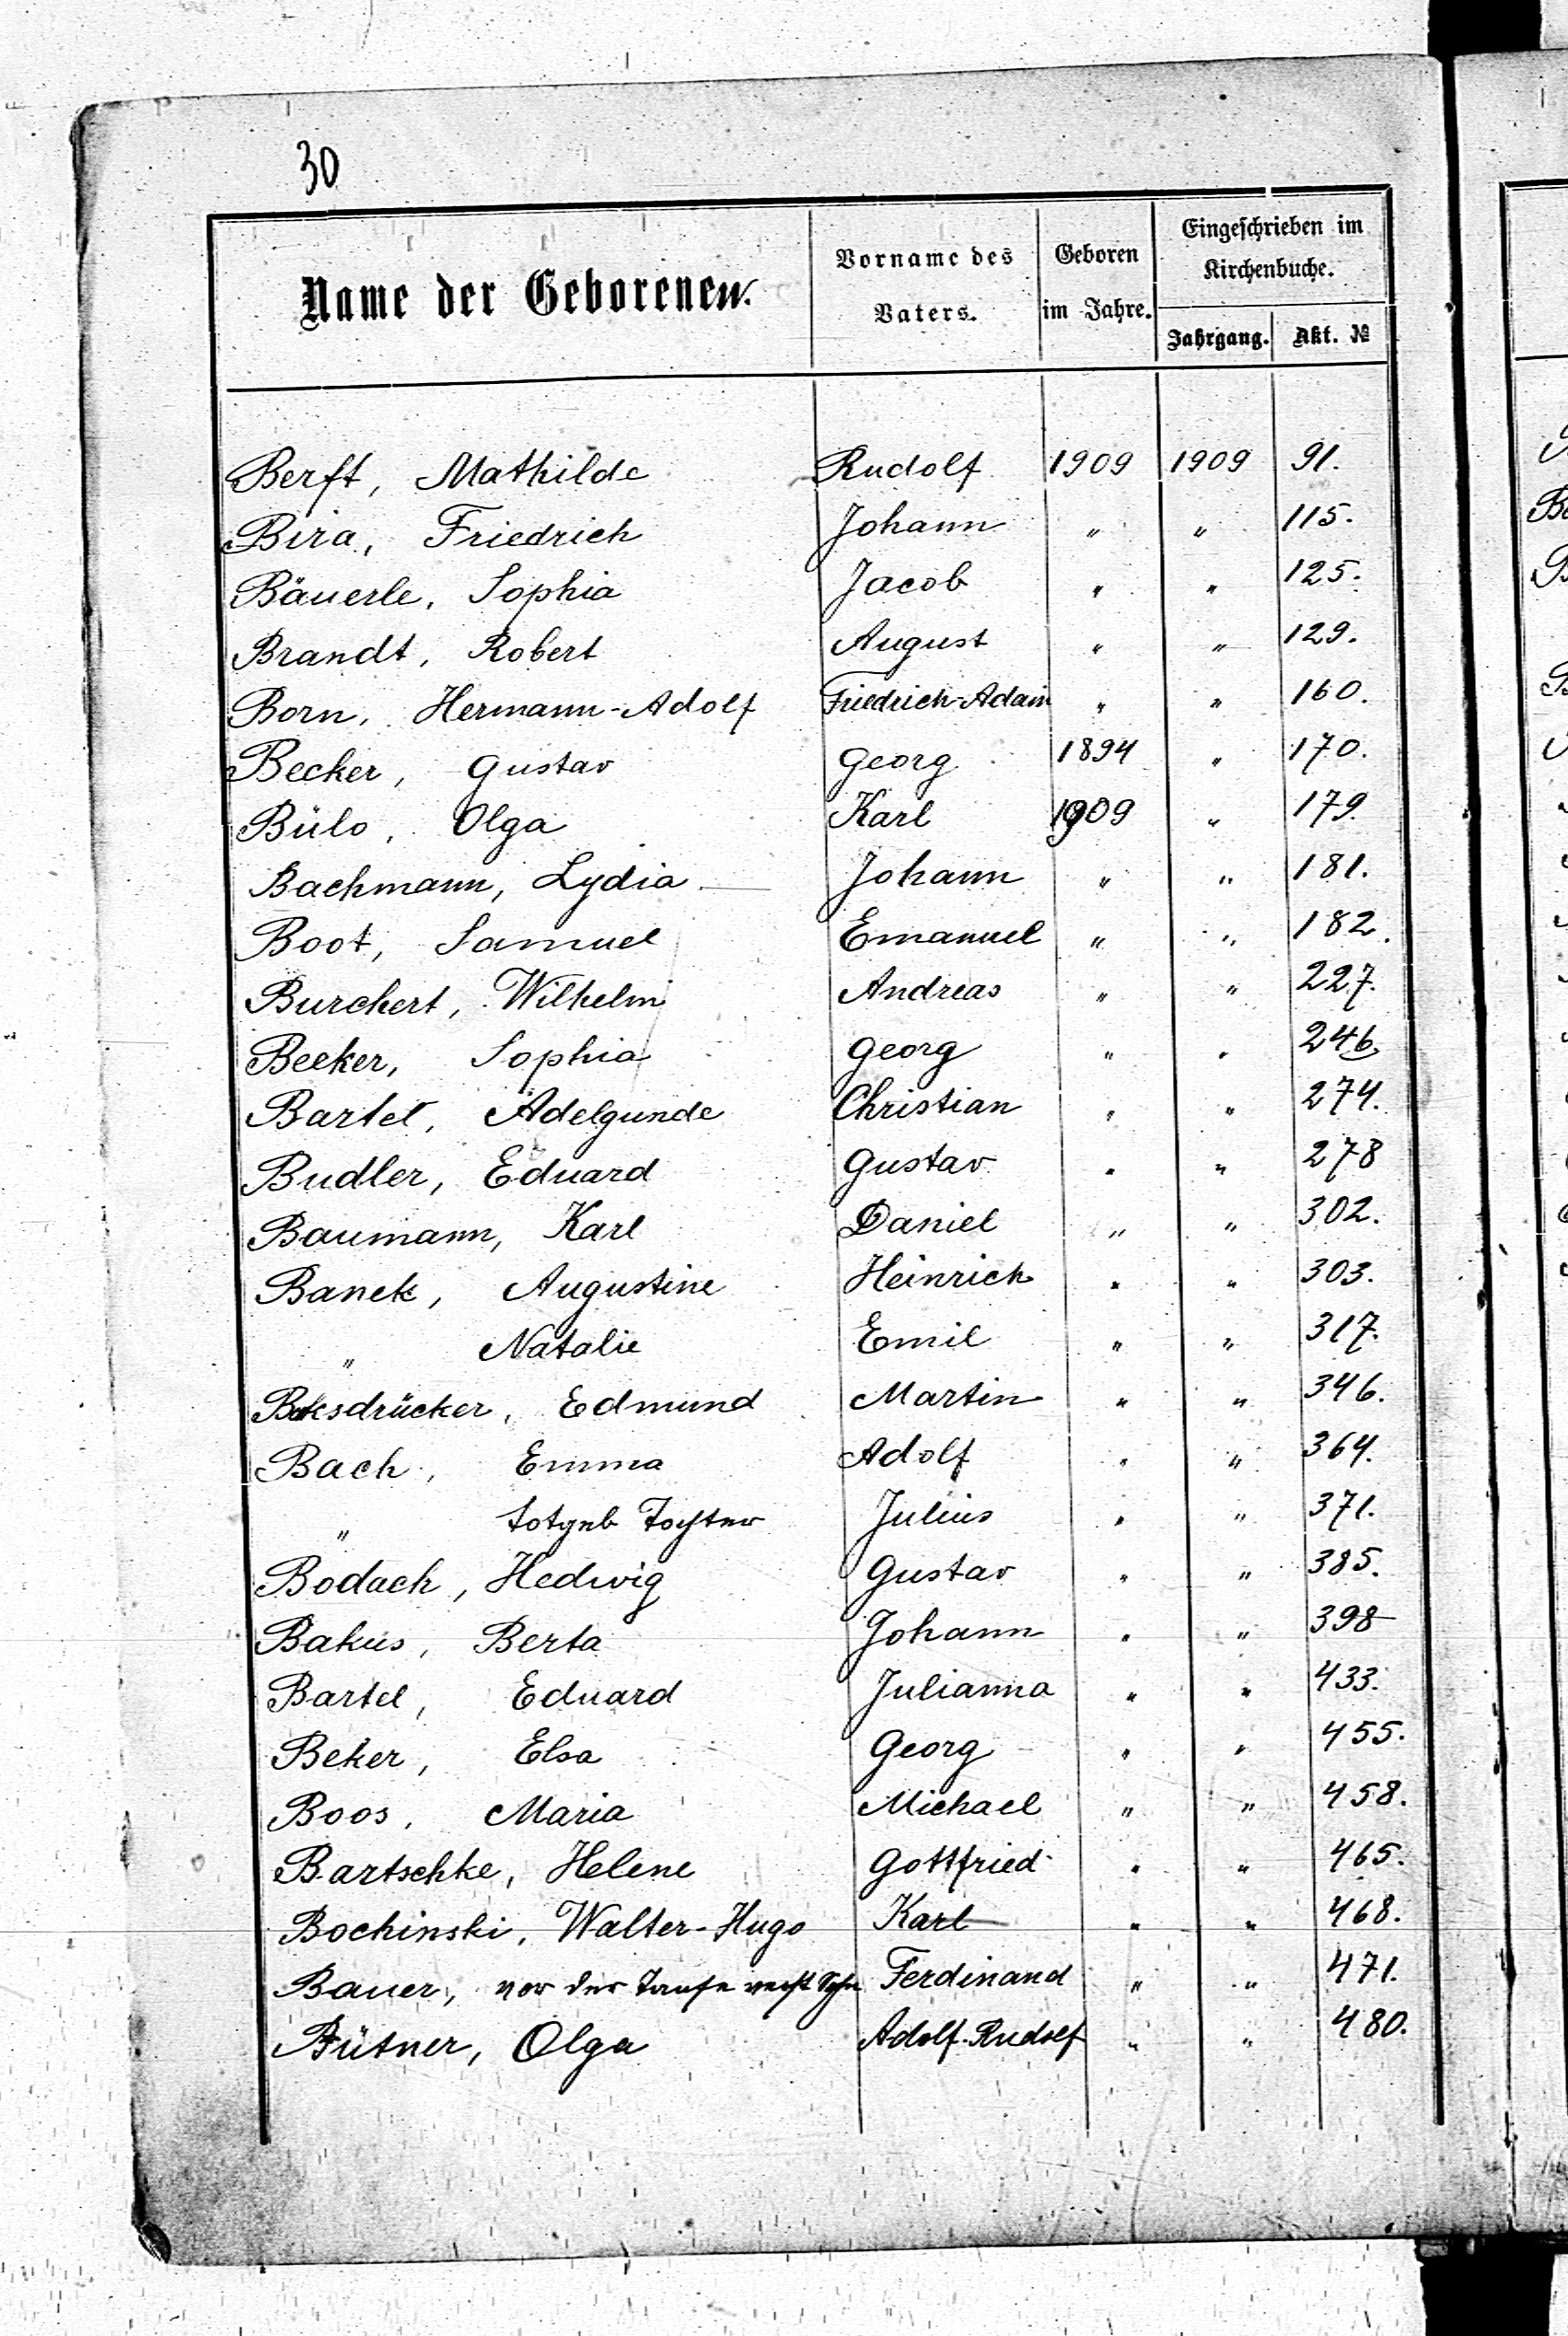 30
Name der Geborenen.
Vorname des Vaters.
Geboren im Jahre.
Eingeschrieben im Kirchenbuche.
Jahrgang. Akt. №
Berft, Mathilde Rudolf 1909 1909 91.
Bira, Friedrich Johann " " 115.
Bäuerle, Sophia Jacob " " 125.
Brandt, Robert August " " 129.
Born, Hermann-Adolf Friedrich-Adam " " 160.
Becker, Gustav Georg 1894 " 170.
Bülo, Olga Karl 1909 " 179.
Bachmann, Lydia Johann " " 181.
Boot, Samuel Emanuel " " 182.
Burchert, Wilhelm Andreas " " 227.
Becker, Sophia Georg " " 246.
Bartel, Adelgunde Christian " " 274.
Budler, Eduard Gustav " " 278
Baumann, Karl Daniel " " 302.
Banek, Augustine Heinrich " " 303.
" Natalie Emil " " 317.
Edmund Martin " " 346.
Bach, Emma Adolf " " 364.
" totgeb Tochter Julius " " 371.
Bodach, Hedwig Gustav " " 385.
Bakus, Berta Johann " " 398
Bartel, Eduard Julianna " " 433.
Beker, Elsa Georg " " 455.
Boos, Maria Michael " " 458.
Bartschke, Helene Gottfried " " 465.
Bochinski, Walter-Hugo Karl " " 468.
Bauer, vor der Taufe verst Sohn Ferdinand " " 471.
Bütner, Olga Adolf-Rudolf " " 480.